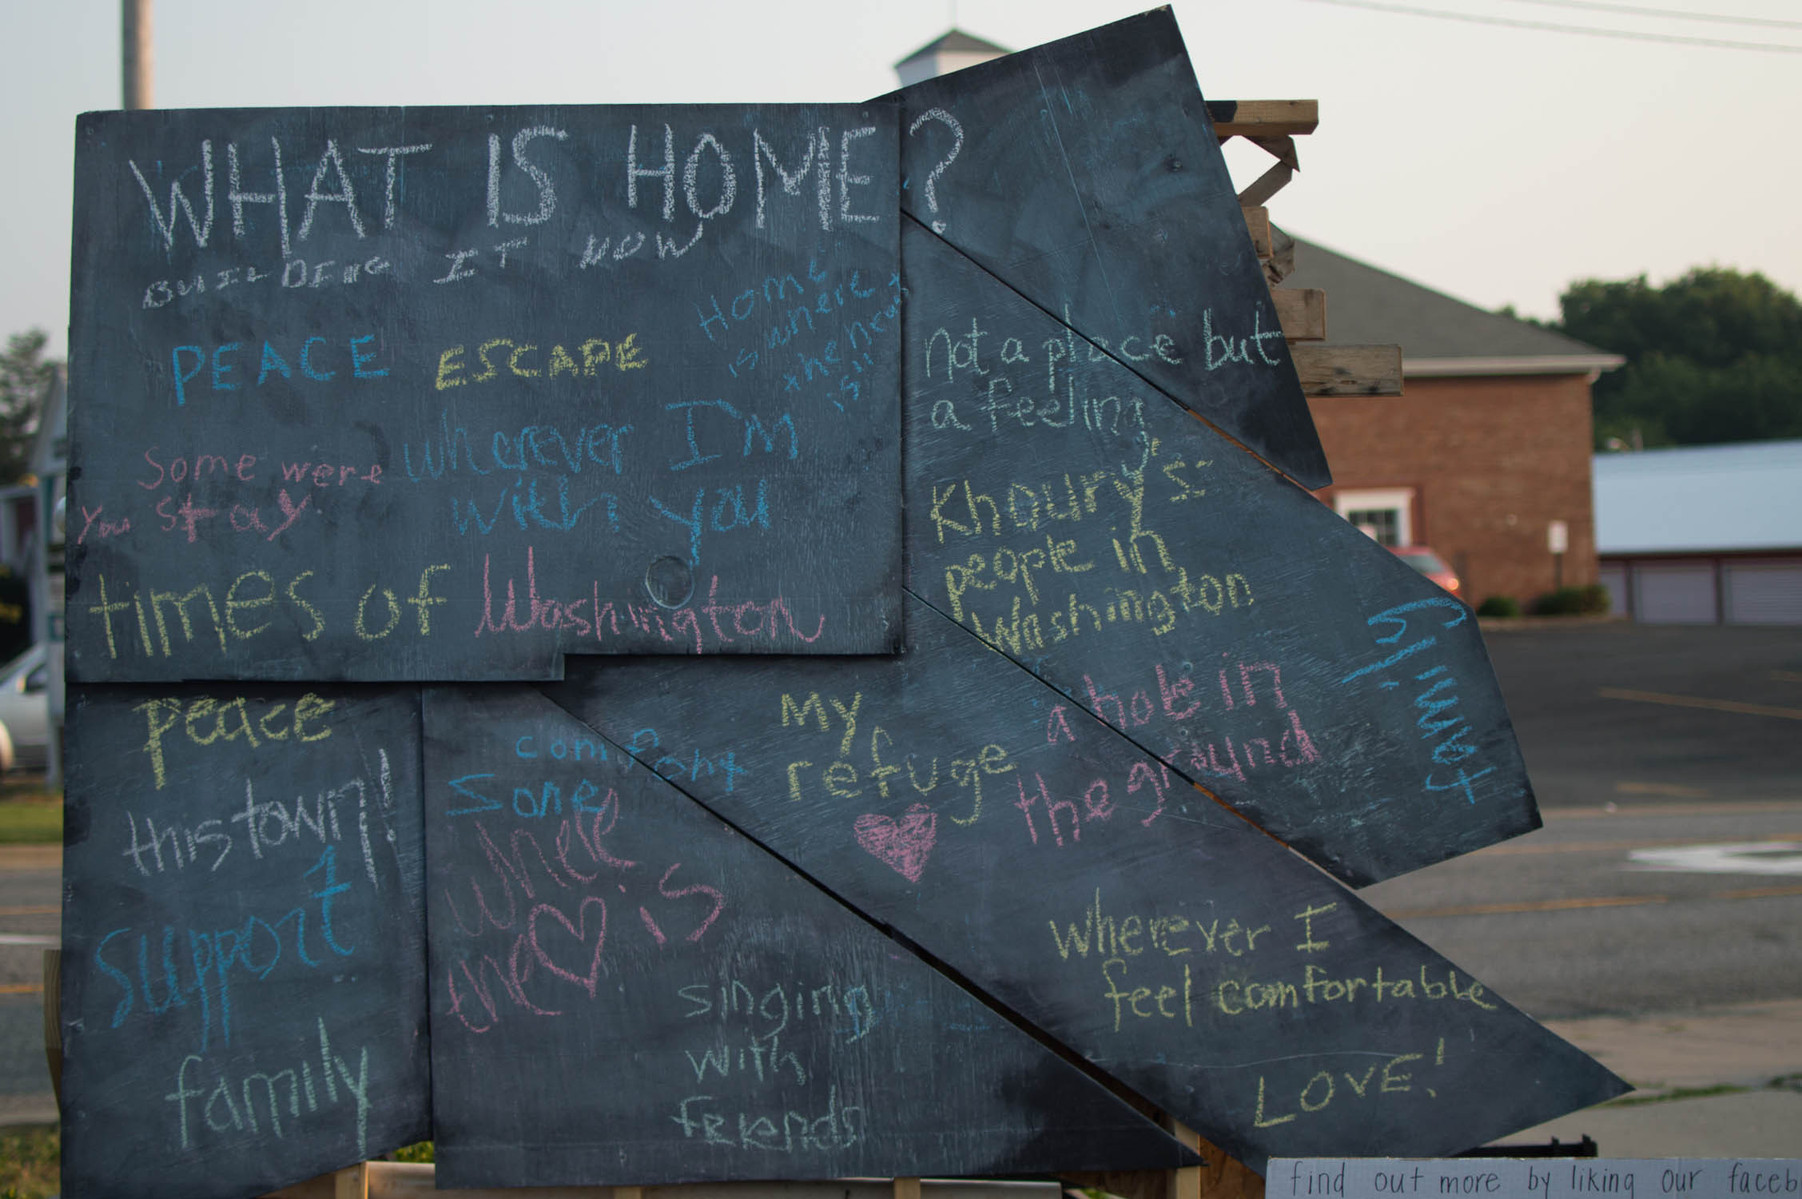 WHAT IS HOME?
BUILDING IT NOW
PEACE
ESCAPE
Home
is where
the heart
is!!
Some were
You stay.
wherever I'm
with you
times of Washington
not a place but
a feeling
Khoury's:
people in
Washington
family
a hole in
the ground
My
refuge
peace
this town!
support
family
Some
where
the ♥ is
singing
with
friends
Wherever I
feel comfortable
LOVE!
find out more by liking our faceb